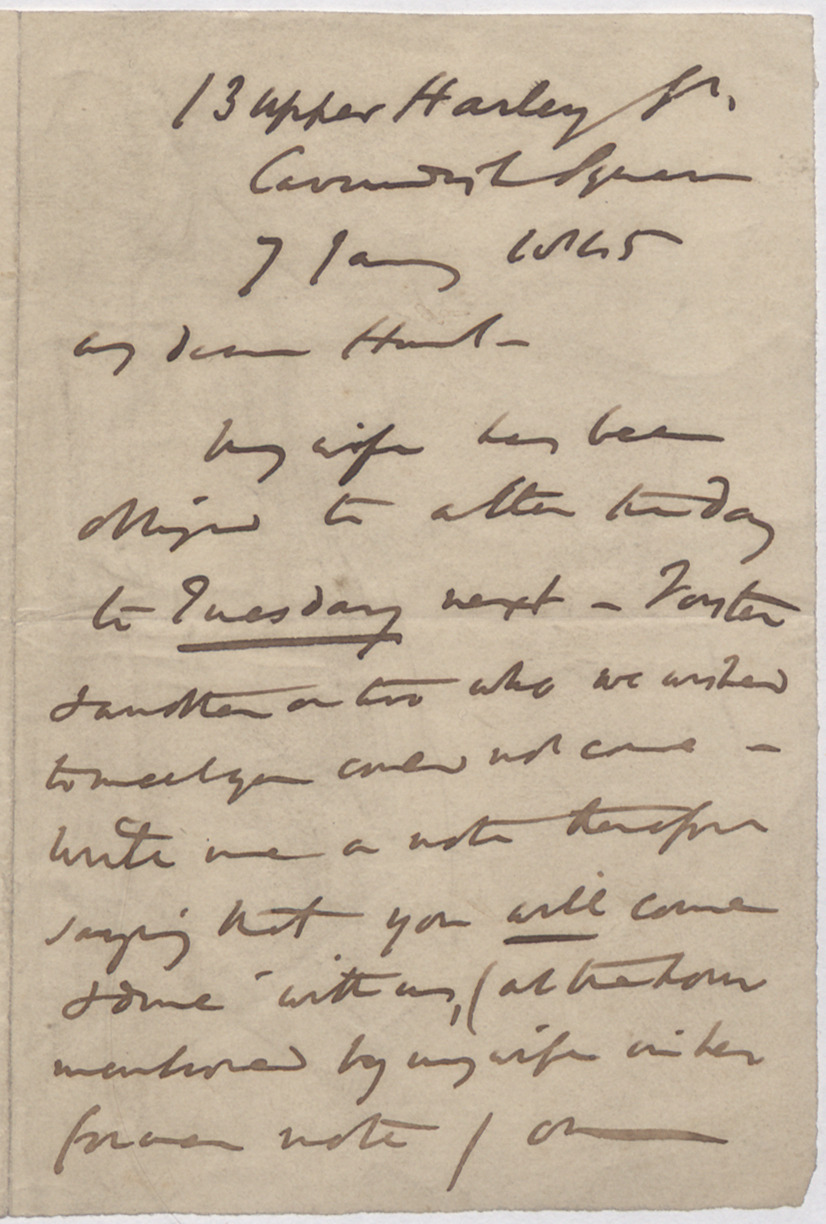 13 Upper Harley St.
Cavendish Square
7 Jany 1845
My dear Hunt -
My wife has been
obliged to alter the day
to Tuesday next - Forster
& another or two who we wished
to meet you could not come -
Write me a note therefore
saying that you will come
& dine with us, (at the hour
mentioned by my wife in her
former note) on